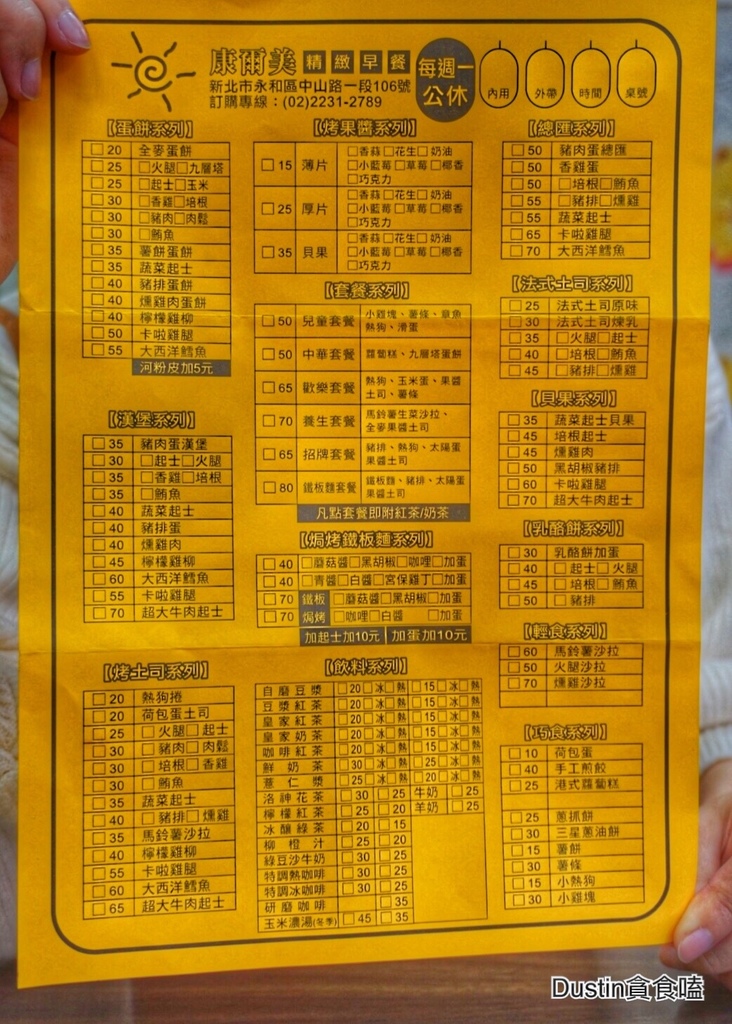 康爾美 精緻早餐
新北市永和區中山路一段106號
訂購專線：(02)2231-2789
每週一
公休
內用 外帶 時間 桌號
【蛋餅系列】
□ 20 全麥蛋餅
□ 25 □火腿□九層塔
□ 25 □起士□玉米
□ 30 □香雞□培根
□ 30 □豬肉□肉鬆
□ 30 □鮪魚
□ 35 薯餅蛋餅
□ 35 蔬菜起士
□ 40 豬排蛋餅
□ 40 燻雞肉蛋餅
□ 40 檸檬雞柳
□ 50 卡啦雞腿
□ 55 大西洋鱈魚
河粉皮加5元
【漢堡系列】
□ 35 豬肉蛋漢堡
□ 30 □起士□火腿
□ 35 □香雞□培根
□ 35 □鮪魚
□ 40 蔬菜起士
□ 40 豬排蛋
□ 40 燻雞肉
□ 45 檸檬雞柳
□ 60 大西洋鱈魚
□ 55 卡啦雞腿
□ 70 超大牛肉起士
【烤土司系列】
□ 20 熱狗捲
□ 20 荷包蛋土司
□ 25 □火腿□起士
□ 30 □豬肉□肉鬆
□ 30 □培根□香雞
□ 30 □鮪魚
□ 35 蔬菜起士
□ 40 □豬排□燻雞
□ 35 馬鈴薯沙拉
□ 40 檸檬雞柳
□ 55 卡啦雞腿
□ 60 大西洋鱈魚
□ 65 超大牛肉起士
【烤果醬系列】
□ 15 薄片 □香蒜□花生□奶油
□小藍莓□草莓□椰香
□巧克力
□ 25 厚片 □香蒜□花生□奶油
□小藍莓□草莓□椰香
□巧克力
□ 35 貝果 □香蒜□花生□奶油
□小藍莓□草莓□椰香
□巧克力
【套餐系列】
□ 50 兒童套餐 小雞塊、薯條、章魚
熱狗、滑蛋
□ 50 中華套餐 蘿蔔糕、九層塔蛋餅
□ 65 歡樂套餐 熱狗、玉米蛋、果醬
土司、薯條
□ 70 養生套餐 馬鈴薯生菜沙拉、
全麥果醬土司
□ 65 招牌套餐 豬排、熱狗、太陽蛋
果醬土司
□ 80 鐵板麵套餐 鐵板麵、豬排、太陽蛋
果醬土司
凡點套餐即附紅茶/奶茶
【焗烤鐵板麵系列】
□ 40 □蘑菇醬□黑胡椒□咖哩□加蛋
□ 40 □青醬□白醬□宮保雞丁□加蛋
□ 70 鐵板 □蘑菇醬□黑胡椒□加蛋
□ 70 焗烤 □咖哩□白醬 □加蛋
加起士加10元 加蛋加10元
【飲料系列】
自磨豆漿 □20□冰□熱 □15□冰□熱
豆漿紅茶 □20□冰□熱 □15□冰□熱
皇家紅茶 □20□冰□熱 □15□冰□熱
皇家奶茶 □20□冰□熱 □15□冰□熱
咖啡紅茶 □20□冰□熱 □15□冰□熱
鮮奶茶 □30□冰□熱 □25□冰□熱
薏仁漿 □25□冰□熱 □20□冰□熱
洛神花茶 □30 □25 牛奶 □25
檸檬紅茶 □25 □20 羊奶 □25
冰釀綠茶 □20 □15
柳橙汁 □25 □20
綠豆沙牛奶 □30 □25
特調熱咖啡 □30 □25
特調冰咖啡 □30 □25
研磨咖啡 □35
玉米濃湯(冬季) □45 □35
【總匯系列】
□ 50 豬肉蛋總匯
□ 50 香雞蛋
□ 50 □培根□鮪魚
□ 55 □豬排□燻雞
□ 55 蔬菜起士
□ 65 卡啦雞腿
□ 70 大西洋鱈魚
【法式土司系列】
□ 25 法式土司原味
□ 30 法式土司煉乳
□ 35 □火腿□起士
□ 40 □培根□鮪魚
□ 45 □豬排□燻雞
【貝果系列】
□ 35 蔬菜起士貝果
□ 45 培根起士
□ 45 燻雞肉
□ 50 黑胡椒豬排
□ 60 卡啦雞腿
□ 70 超大牛肉起士
【乳酪餅系列】
□ 30 乳酪餅加蛋
□ 40 □起士□火腿
□ 45 □培根□鮪魚
□ 50 □豬排
【輕食系列】
□ 60 馬鈴薯沙拉
□ 50 火腿沙拉
□ 70 燻雞沙拉
【巧食系列】
□ 10 荷包蛋
□ 40 手工煎餃
□ 25 港式蘿蔔糕
□ 25 蔥抓餅
□ 30 三星蔥油餅
□ 15 薯餅
□ 30 薯條
□ 15 小熱狗
□ 30 小雞塊
Dustin貪食嗑